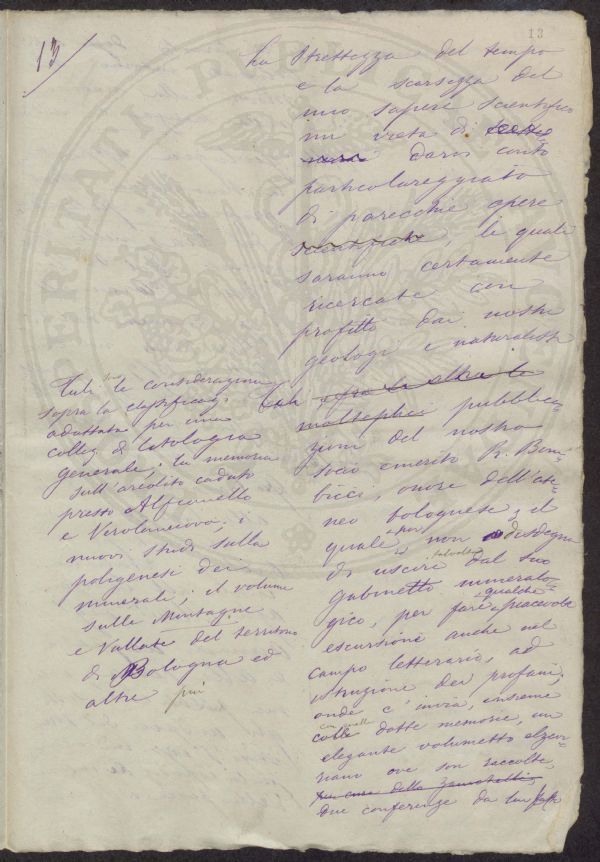 13
13
La Strettezza del tempo
e la scarsezza del
mio sapere scientifico
mi vieta di
darvi conto
particolareggiato
di parecchie opere
scientifiche, le quali
saranno certamente
ricercate con
profitto dai nostri
geologi e naturalisti
tra le altre le
molteplici pubblica-
zioni del nostro
socio emerito R. Bom-
bicci, onore dell'ate-
neo bolognese; il
quale pur non disdegna
di uscire talvolta dal suo
gabinetto mineralo-
gico, per fare qualche piacevole
escursione anche nel
campo letterario, ad
istruzione dei profani;
onde c'invia, insieme
con quelle
colle dotte memorie, un
elegante volumetto elzevi-
riano ove son raccolte,
per cura della Zanichelli,
due conferenze da lui
Tali sono le considerazioni
sopra la classificaz.
adottata per una
collez. di Litologia
generale; la memoria
sull'areolito caduto
presto Alfianello
e Verolanuova; i
nuovi studi sulla
poligenesi dei
minerali; il volume
sulle Montagne
e Vallate del territorio
di Bologna ed
altre più